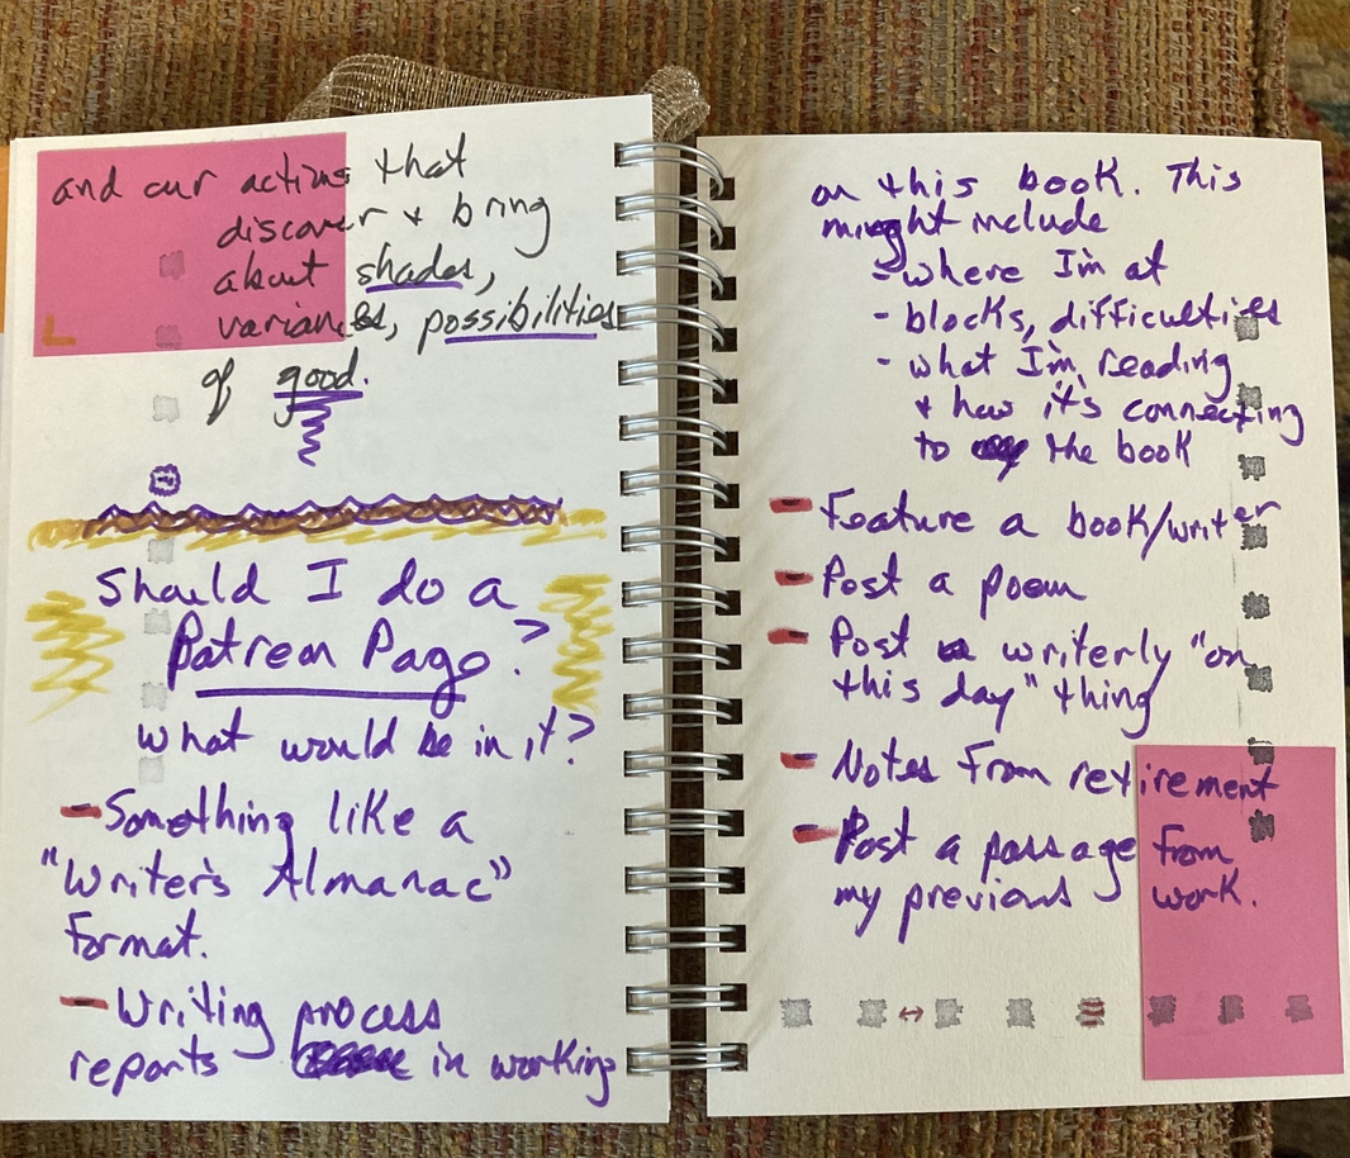 and our actions that
discover + bring
about shades,
variances, possibilities
of good.
Should I do a
Patreon Page?
What would be in it?
- Something like a
"Writer's Almanac"
Format.
- Writing process
reports in working
on this book. This
might include
- where I'm at
- blocks, difficulties
- what I'm reading
+ how it's connecting
to the book
- Feature a book/writer
- Post a poem
- Post a writerly "on
this day" thing
- Notes From retirement
- Post a passage from
my previous work.